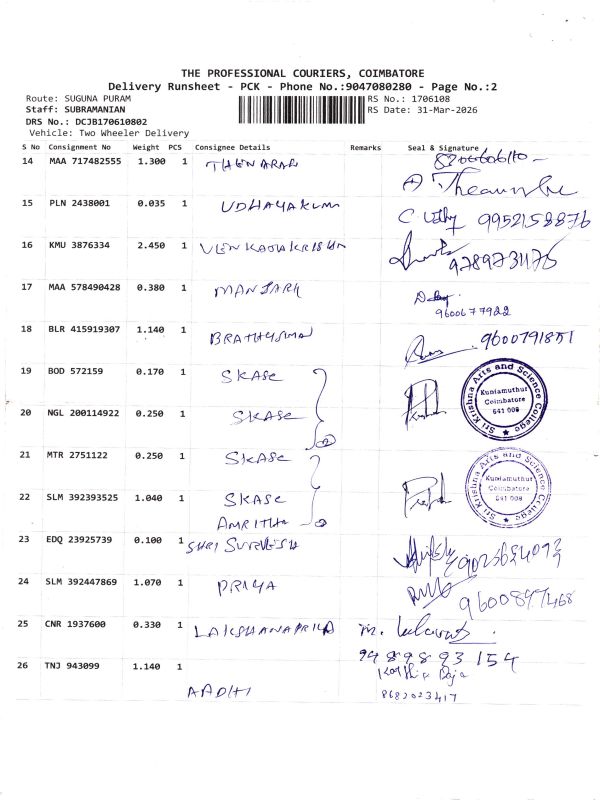 THE PROFESSIONAL COURIERS, COIMBATORE
Delivery Runsheet - PCK - Phone No.:9047080280 - Page No.:2
Route: SUGUNA PURAM
RS No.: 1706108
Staff: SUBRAMANIAN
RS Date: 31-Mar-2026
DRS No.: DCJB170610802
Vehicle: Two Wheeler Delivery
S No Consignment No Weight PCS Consignee Details Remarks Seal & Signature
14 MAA 717482555 1.300 1
15 PLN 2438001 0.035 1 UDHAYAKUM 9952158876
16 KMU 3876334 2.450 1
17 MAA 578490428 0.380 1 MANJARY
9600677922
18 BLR 415919307 1.140 1 9600791851
19 BOD 572159 0.170 1 SKASC
Sri Krishna Arts and Science College
Kuniamuthur
Coimbatore
641 008
20 NGL 200114922 0.250 1 SKASC
21 MTR 2751122 0.250 1 SKASC
Sri Krishna Arts and Science College
Kuniamuthur
Coimbatore
641 008
22 SLM 392393525 1.040 1 SKASC
AMRITHA
23 EDQ 23925739 0.100 1 SHRI
24 SLM 392447869 1.070 1 PRIYA
25 CNR 1937600 0.330 1 LAKSHANAPRIYA
9489893154
26 TNJ 943099 1.140 1
AADHI 8682023417